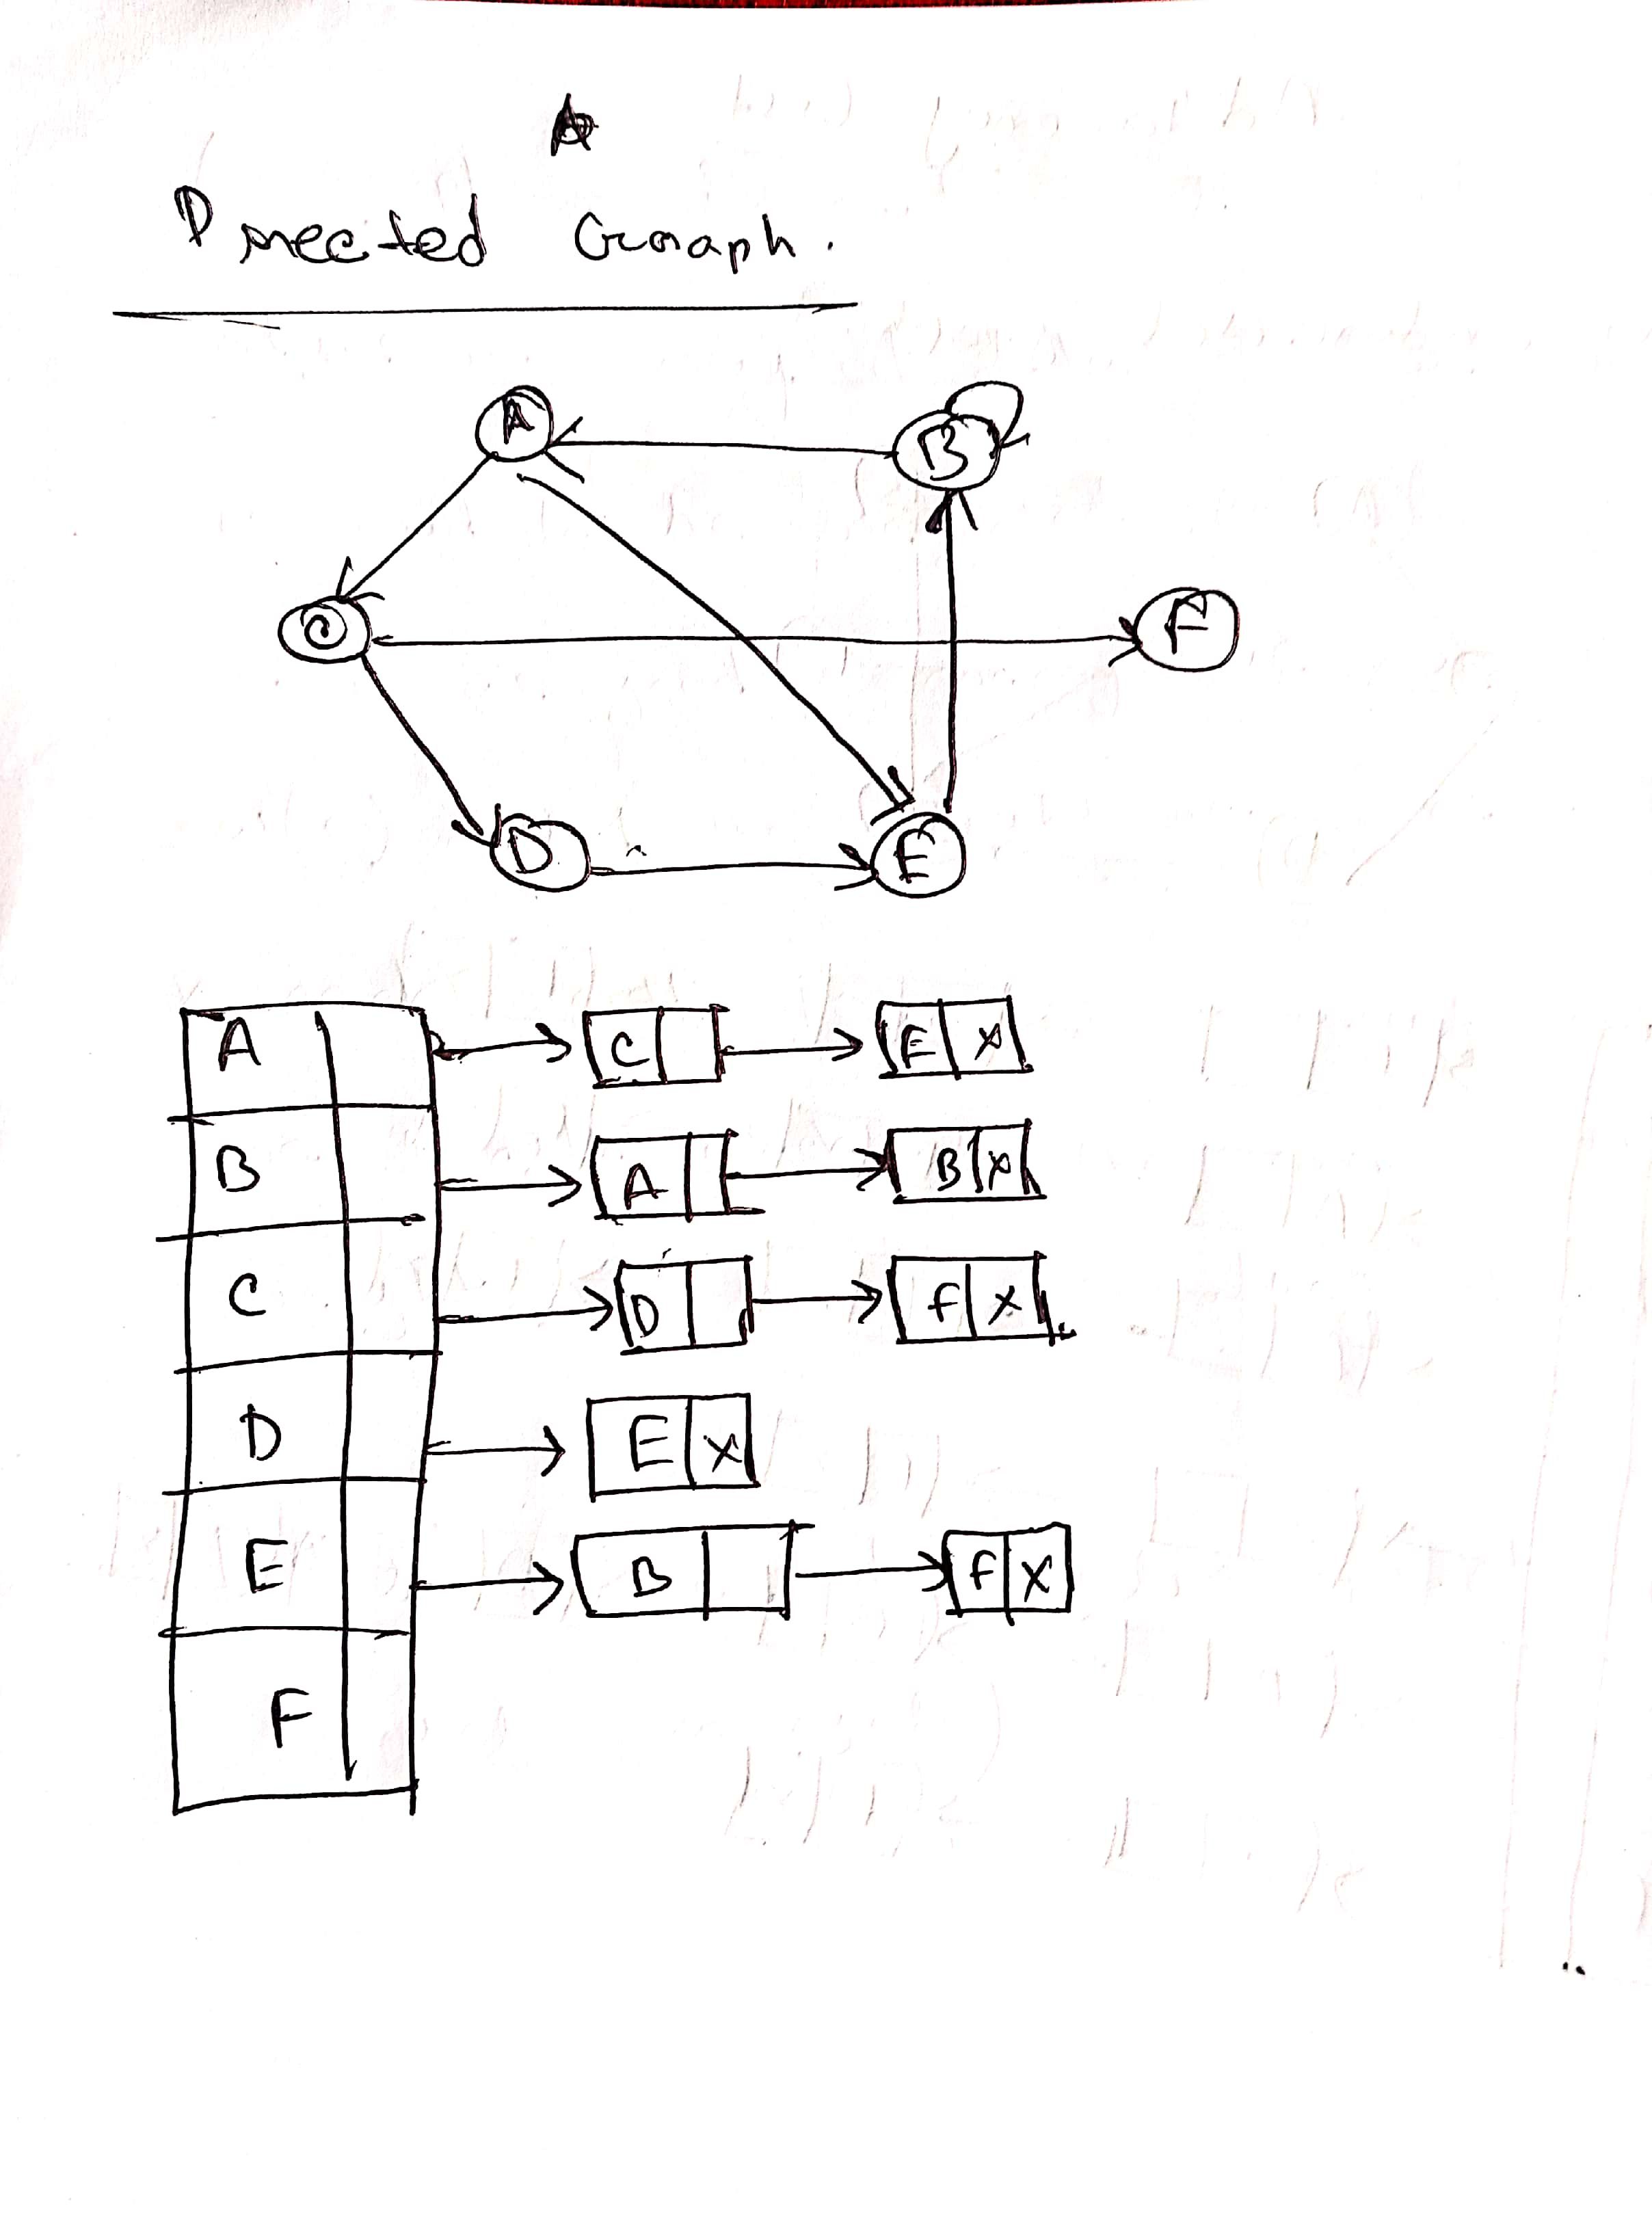 Directed Graph.
A B
C F
D E
A C E X
B A B X
C D F X
D E X
E B F X
F